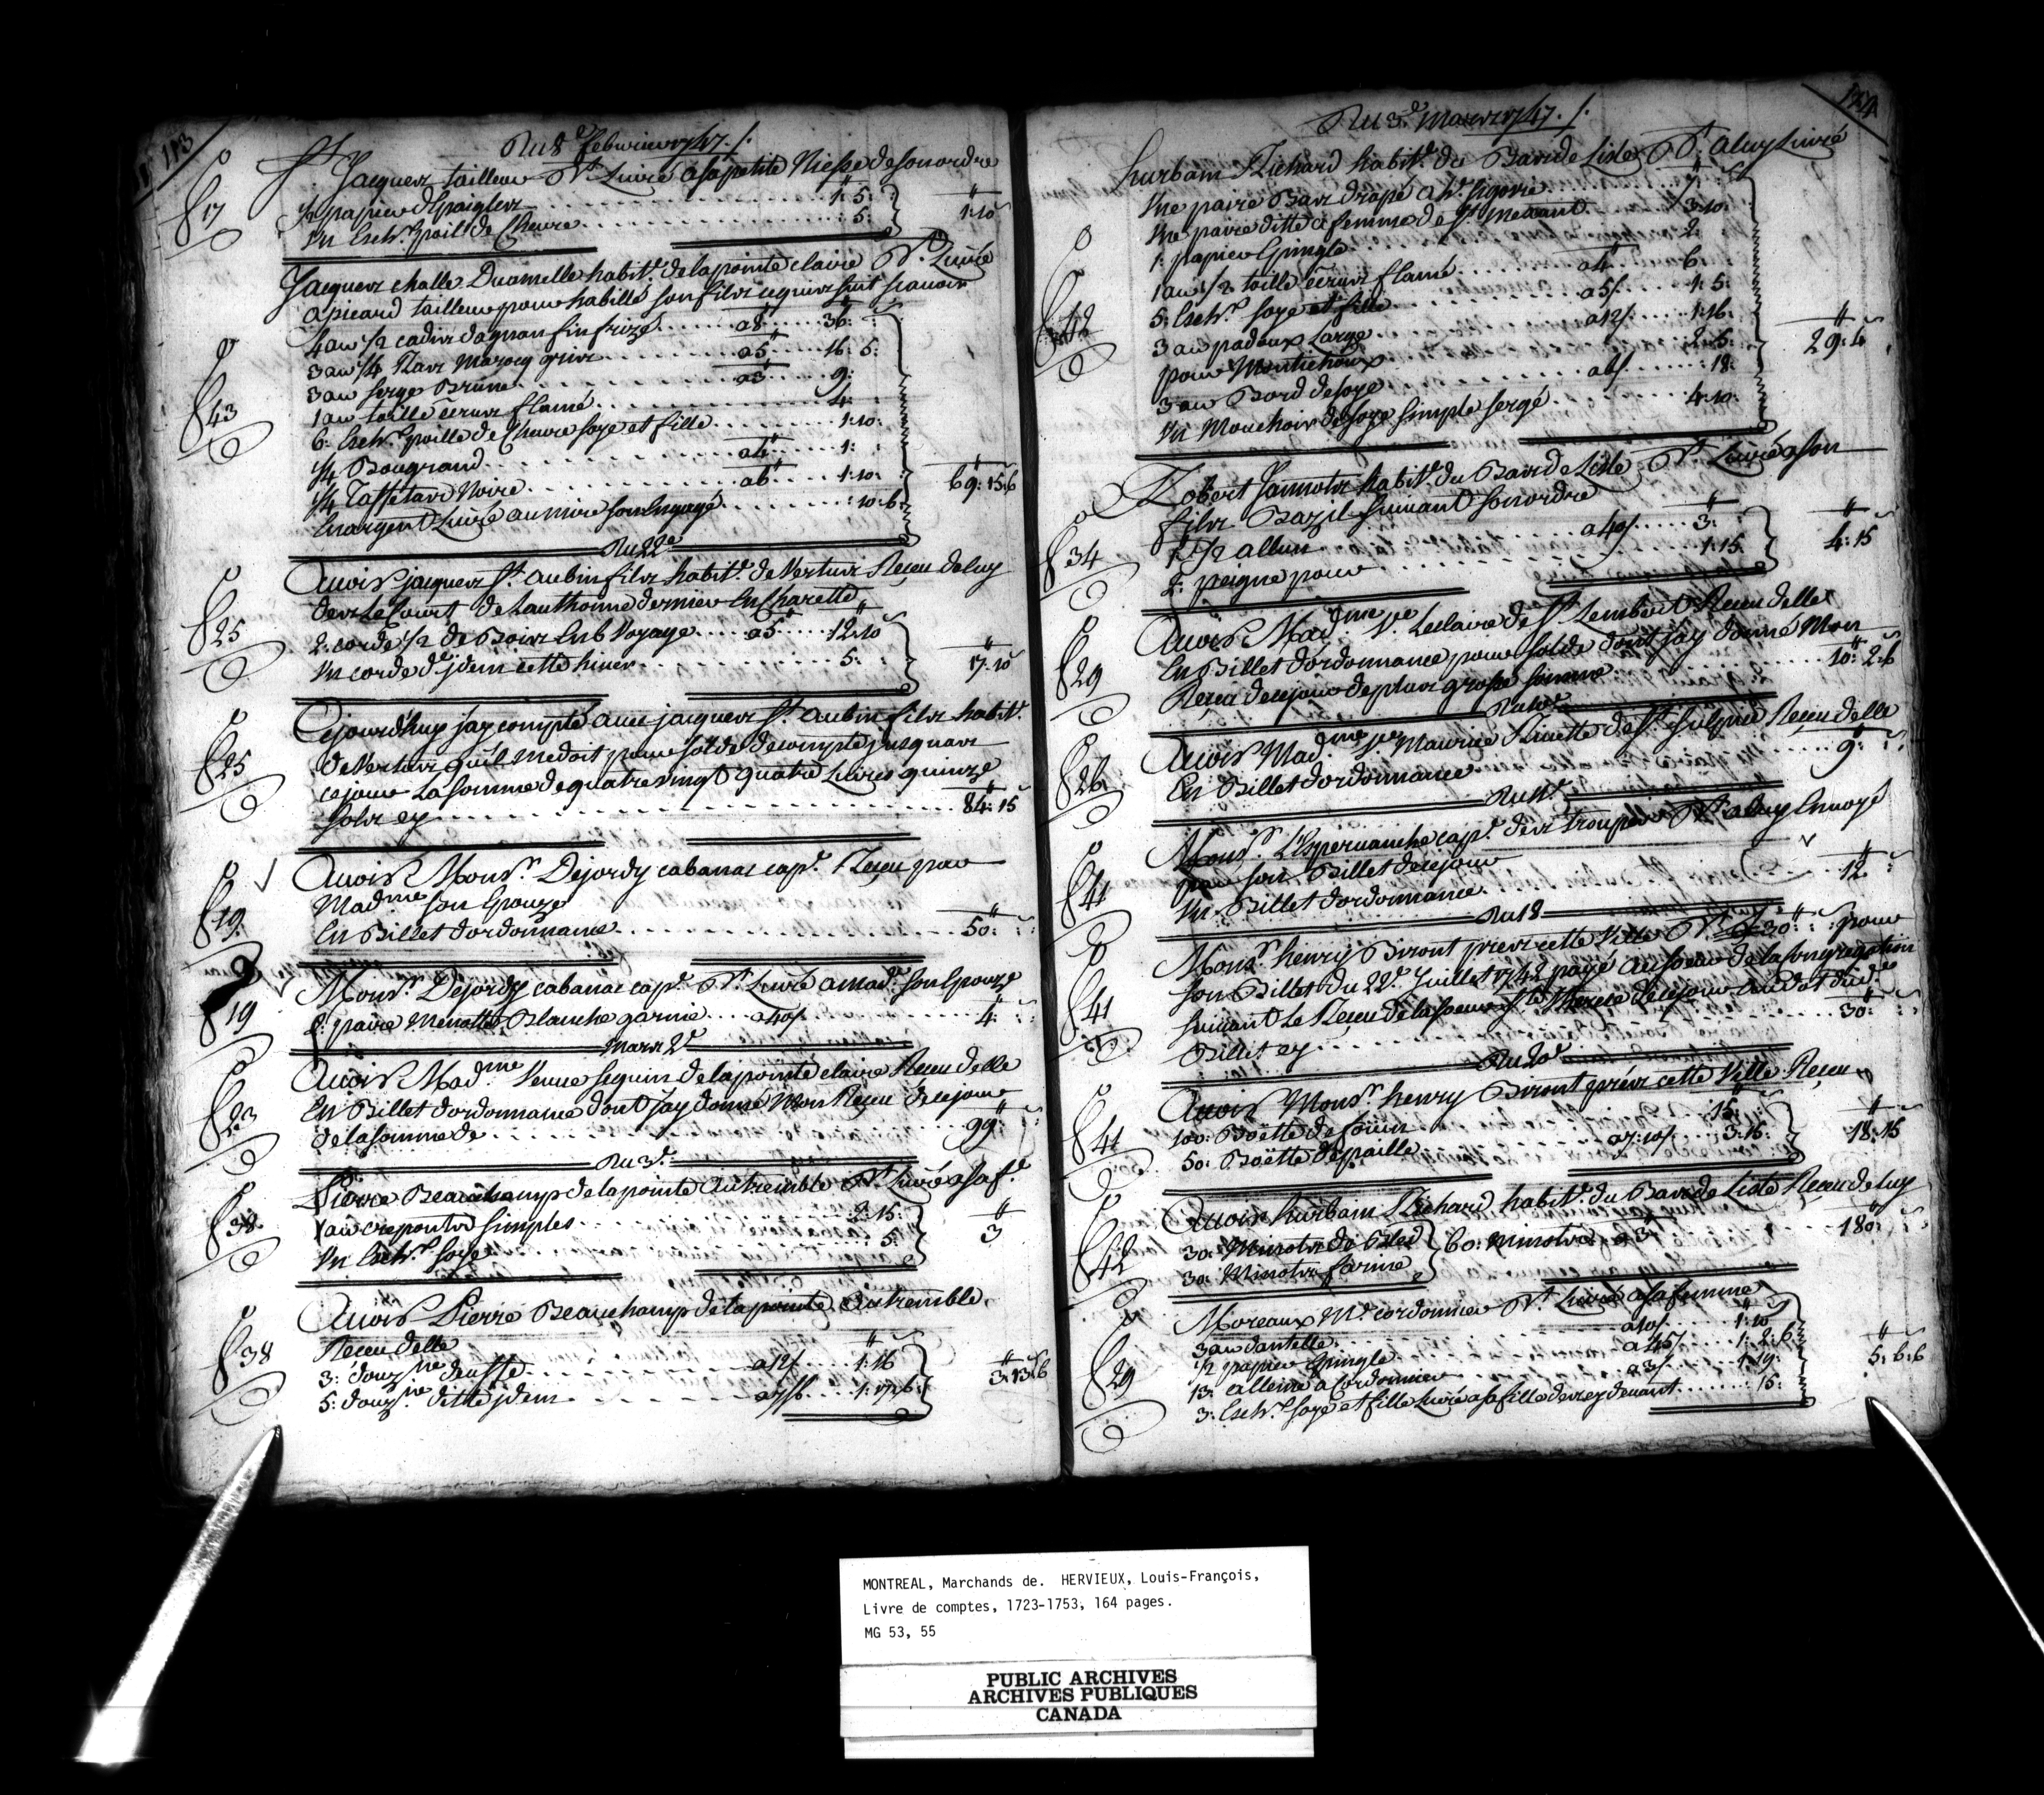 113
Du 8e febvrier 1747 ./.
Sr Jacques tailleur Dt Livré a sa petite Niesse de son ordre
fo 17
1/2 papier d'Epaigles 1: 5:
Un Esch.au poille de Chevre : 5: 1: 10
Jacques challe Duamelle habit.t de la pointe claire Dt Livré
a picard tailleur pour habillé son fils ce qui suit scavoir
fo 43
4 au 1/2 cadis dagnan fin frizé a 8 36:
3 au 1/4 Ras Marocq gris a 5 16: 5:
3 au serge Brune a 3 9:
1 au toille écrue flamé 4:
6: Esch.au poille de Chevre soye et fille 1: 10:
1/4 Bougrand a 4 1:
1/4 Taffetas Noire a 6 1: 10:
En argent Livré au mire son Engagé : 10: 6 69: 15: 6
Du 22e
Avoir jacques St aubin fils habit.t de Vertus Receu de luy
fo 25
des Le Court de Lauthonne dernier En Charette
2: corde 1/2 de Bois En 6 Voyage a 5 12: 10
Un corde d'jdem cette hiver 5: 17: 10
Cejourd'huy jay compté avec jacques St aubin fils habit.t
fo 25
de Vertus qu'il me doit pour solde de compte jusquas
ce jour La somme de quatre vingt quatre Livres quinze
sols cy 84: 15
Avoir Monsr. Dejordy cabanac cap.e Receu par
fo 19
Mad.me son Epouze
En Billet dordonnance 50:
Monsr. Dejordy cabanac cap.e Dt Livré a Mad.e son Epouze
fo 19
2: paire Menottes Blanche garnie a 40/ 4:
Mars 2e
Avoir Mad.me Veuve seguin de la pointe claire Receu delle
fo 23
En Billet dordonnance dont jay donné Mon Receu de ce jour
de la somme de 99:
Du 3e
Pierre Beauchamp de la pointe autremble Dt Livré a sa f.e
fo 38
1 au crepontes simples 2: 15:
Un Esch.au soye : 5: 3
Avoir Pierre Beauchamp de la pointe autremble
fo 38
Receu delle
3: douz.ne deuffe a 12/ 1: 16
5: douz.ne ditte jdem a 7/6 1: 17: 6 3: 13: 6
124
Du 3e Mars 1747 ./.
hurbain Richard habit.t du Bas de Lisle Dt a luy Livré
fo 42
Une paire Bas drapé a h.e segovie 7:
Une paire ditte a femme de St menant 3: 10:
1: papier Epingle 2:
1 au 1/2 toille écrue flamé a 4 6:
5: Esch.au soye et fille a 5/ 1: 5:
3 au padoux Large a 12/ 1: 16:
pour 2: 5:
3 au Bord de soye a 6/ : 18:
Un Mouchoir de soye simple sergé 4: 10: 29: 4
Robert Jannots habit.t du Bas de Lisle Dt Livré a son
fo 34
fils Bazil suivant son ordre
1: 1/2 allun a 40/ 3:
2: peigne pour 1: 15 4: 15
Avoir Mad.me Ve Leclaire de St Lembert Receu delle
fo 29
En Billet dordonnance pour solde dont jay donné Mon
Receu de ce jour de plus grosse somme 10: 2: 6
Avoir Mad.me Ve Maurice Rivette de St sulpice Receu delle
fo 26
En Billet dordonnance 9:
Monsr. L'Espervanche cap.e des Troupes Dt a luy Envoyé
fo 41
par son Billet de ce jour
Un Billet dordonnance 12
Du 18
Monsr. henry Biront pres cette Ville Dt 30: pour
fo 41
son Billet du 22e Juillet 1742 payé au soeur de la Congregation
suivant Le Receu de la soeur Ste Therese de ce jour du
Billet cy 30:
Du 20e
Avoir Monsr. henry Biront pres cette Ville Receu
fo 41
100: Boëtte de foüin 15:
50: Boëtte de paille a 7: 10/ 3: 15: 18: 15
Avoir hurbain Richard habit.t du Bas de Lisle Receu de luy
fo 42
30: Minots de Bled } 60: minots a 3 180:
30: Minots farine
Moreaux M.e cordonnier Dt Livré a sa femme
fo 29
3 au dantelle a 10/ 1: 10
1/2 papier Epingle a 45/ 1: 2: 6
13: allenne a Cordonnier a 3/ 1: 19:
3: Esch.au soye et fille Livré a sa fille des cy devant : 15: 5: 6: 6
MONTREAL, Marchands de. HERVIEUX, Louis-François,
Livre de comptes, 1723-1753, 164 pages.
MG 53, 55
PUBLIC ARCHIVES
ARCHIVES PUBLIQUES
CANADA